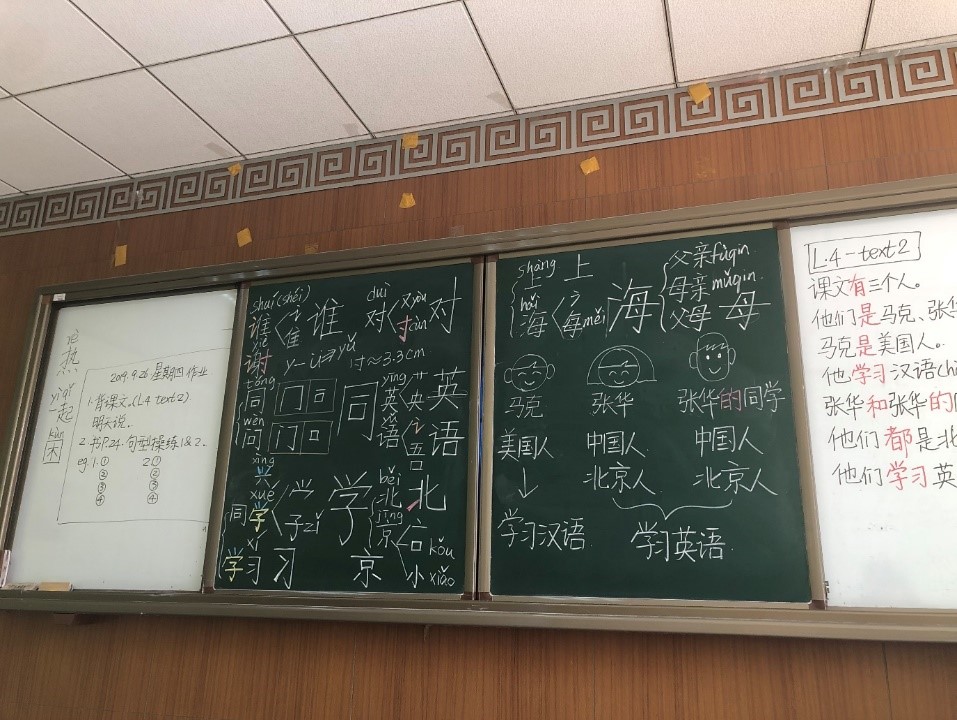 热
yìqǐ
一起
kùn
困
2019.9.26 星期四 作业
1.背课文.(L4 text2)
明天说.
2.书P.24.句型操练1&2.
eg. 1.① 2.①
② ②
③ ③
④ ④
shuí(shéi)
谁 讠 隹 谁
duì
对 又yòu 寸cùn 对
xiè
谢
y-ü⇒yǔ
1寸≈3.3cm
tóng
同 冂 口 同
wèn
问 门 口
yīng
英 艹 央 英
yǔ
语 讠 吾 语
xīng
兴
xué
同学 子zǐ 学
běi
北 北
jīng
京 亠 口 kǒu
小 xiǎo
xí
学习 习 京
shàng
上 上
hǎi
海 氵 每měi 海
父亲fùqin
母亲mǔqin
父母 母
马克 张华 张华的同学
美国人 中国人 中国人
↓ 北京人 北京人
学习汉语. 学习英语.
L.4-text2
课文有三个人。
他们是马克、张华
马克是美国人。
他学习汉语(h
张华和张华的
他们都是北
他们学习英